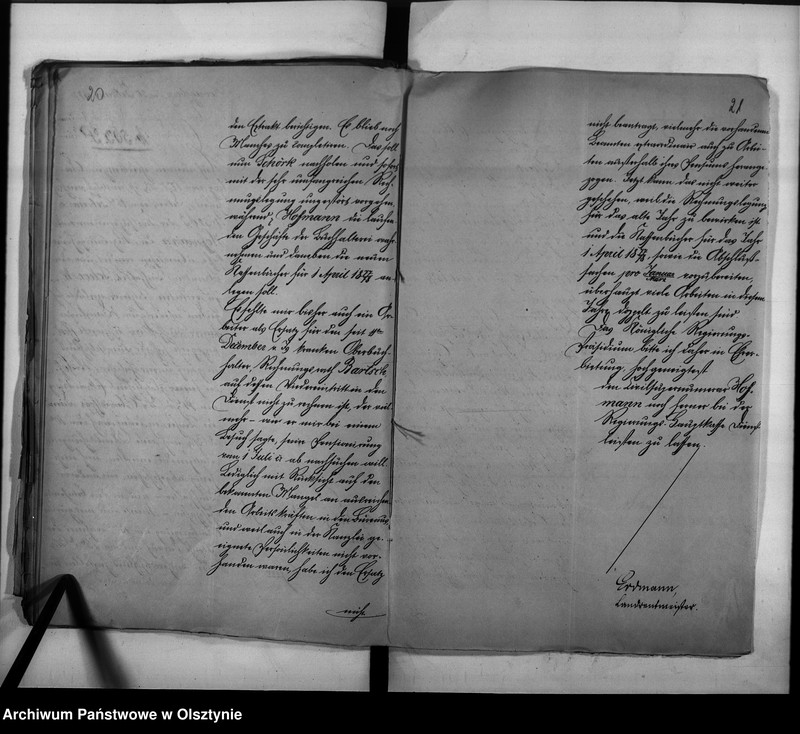 20
den Extrakt berichtigen. Es blieb noch
Manches zu completiren. Das soll
nun Schörk nachholen und sofort
mit der sehr umfangreichen Rech-
nungslegung ungestört vorgehen,
während Hofmann die laufen-
den Geschäfte der Buchhalterei wahr-
nehmen und daneben die neuen
Kassenbücher für 1 April 1877/78 an-
legen soll.
Es fehlte mir bisher auch ein Ar-
beiter als Ersatz für den seit
December v. Js kranken Oberbuch-
halter, Rechnungsrath
auf dessen Wiedereintritt in den
Dienst nicht zu rechnen ist, der viel-
mehr – wie er mir bei einem
Besuch sagte, seine Pensionirung
vom 1 Juli c. ab nachsuchen will.
Lediglich mit Rücksicht auf den
bekannten Mangel an ausreichen-
den Arbeitskräften in den Büreaus
und weil auch in der Kanzlei ge-
eignete Persönlichkeiten nicht vor-
handen waren, habe ich den Ersatz
nicht
21
nicht beantragt, vielmehr die vorhandenen
Beamten extraordinair auch zu Arbei-
ten außerhalb ihres Pensums herange-
zogen. Jetzt kann das nicht weiter
geschehen, weil die Rechnungslegung
für das alte Jahr zu bewirken ist
und die Kassenbücher für das Jahr
1 April 1877/78 sowie die Abschluß-
sachen pro Januar vorzubereiten,
überhaupt viele Arbeiten in diesem
Jahre doppelt zu leisten sind
Das Königliche Regierungs-
Präsidium bitte ich daher in Ehrer-
bietung, hochgeneigtest
den Civilsupernumerar Hof-
mann noch ferner bei der
Regierungs-Hauptkasse Dienste
leisten zu lassen.
Erdmann,
Landrentmeister.
Archiwum Państwowe w Olsztynie